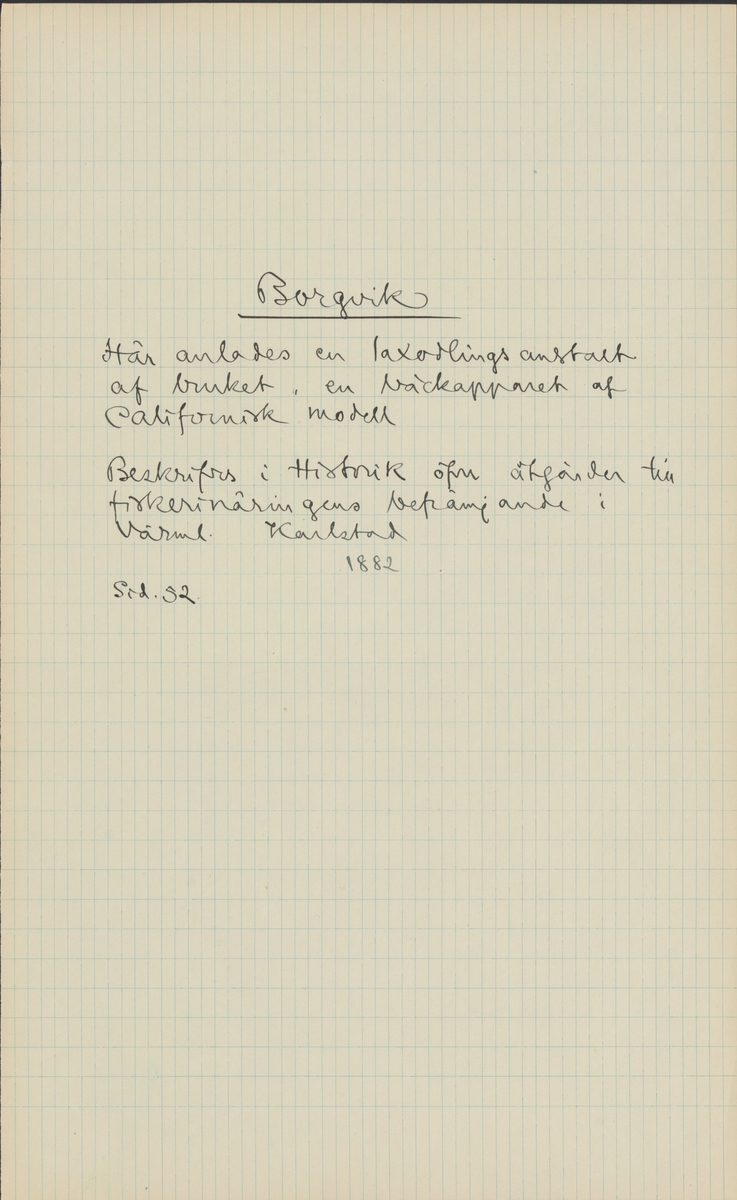 Borgvik
Här anlades en laxodlingsanstalt
af bruket, en bäckapparat af
Californisk modell
Beskrifves i Historik öfver åtgärder till
fiskerinäringens befrämjande i
Värml. Karlstad
1882
Sid. 52